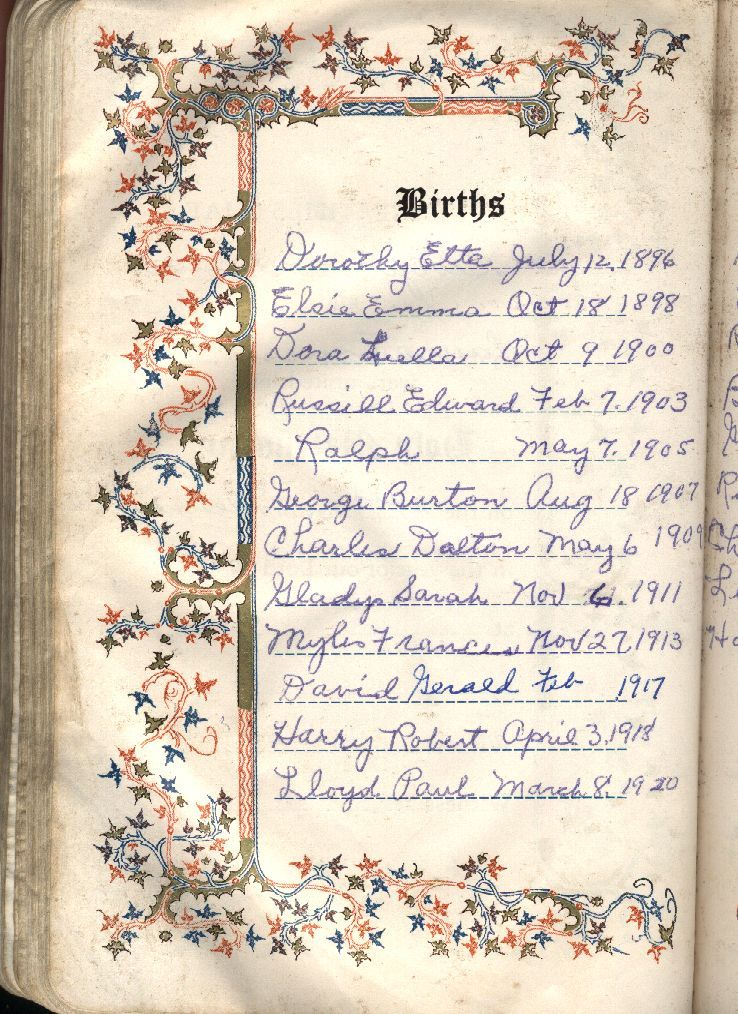 Births
Dorothy Etta July 12, 1896
Elsie Emma Oct 18 1898
Dora Luella Oct 9 1900
Russill Edward Feb 7. 1903
Ralph May 7. 1905
George Burton Aug 18 1907
Charles Dalton May 6 1909
Gladys Sarah Nov 6. 1911
Myles Francis Nov 27, 1913
David Gerald Feb , 1917
Harry Robert April 3, 1918
Lloyd Paul March 8. 1920